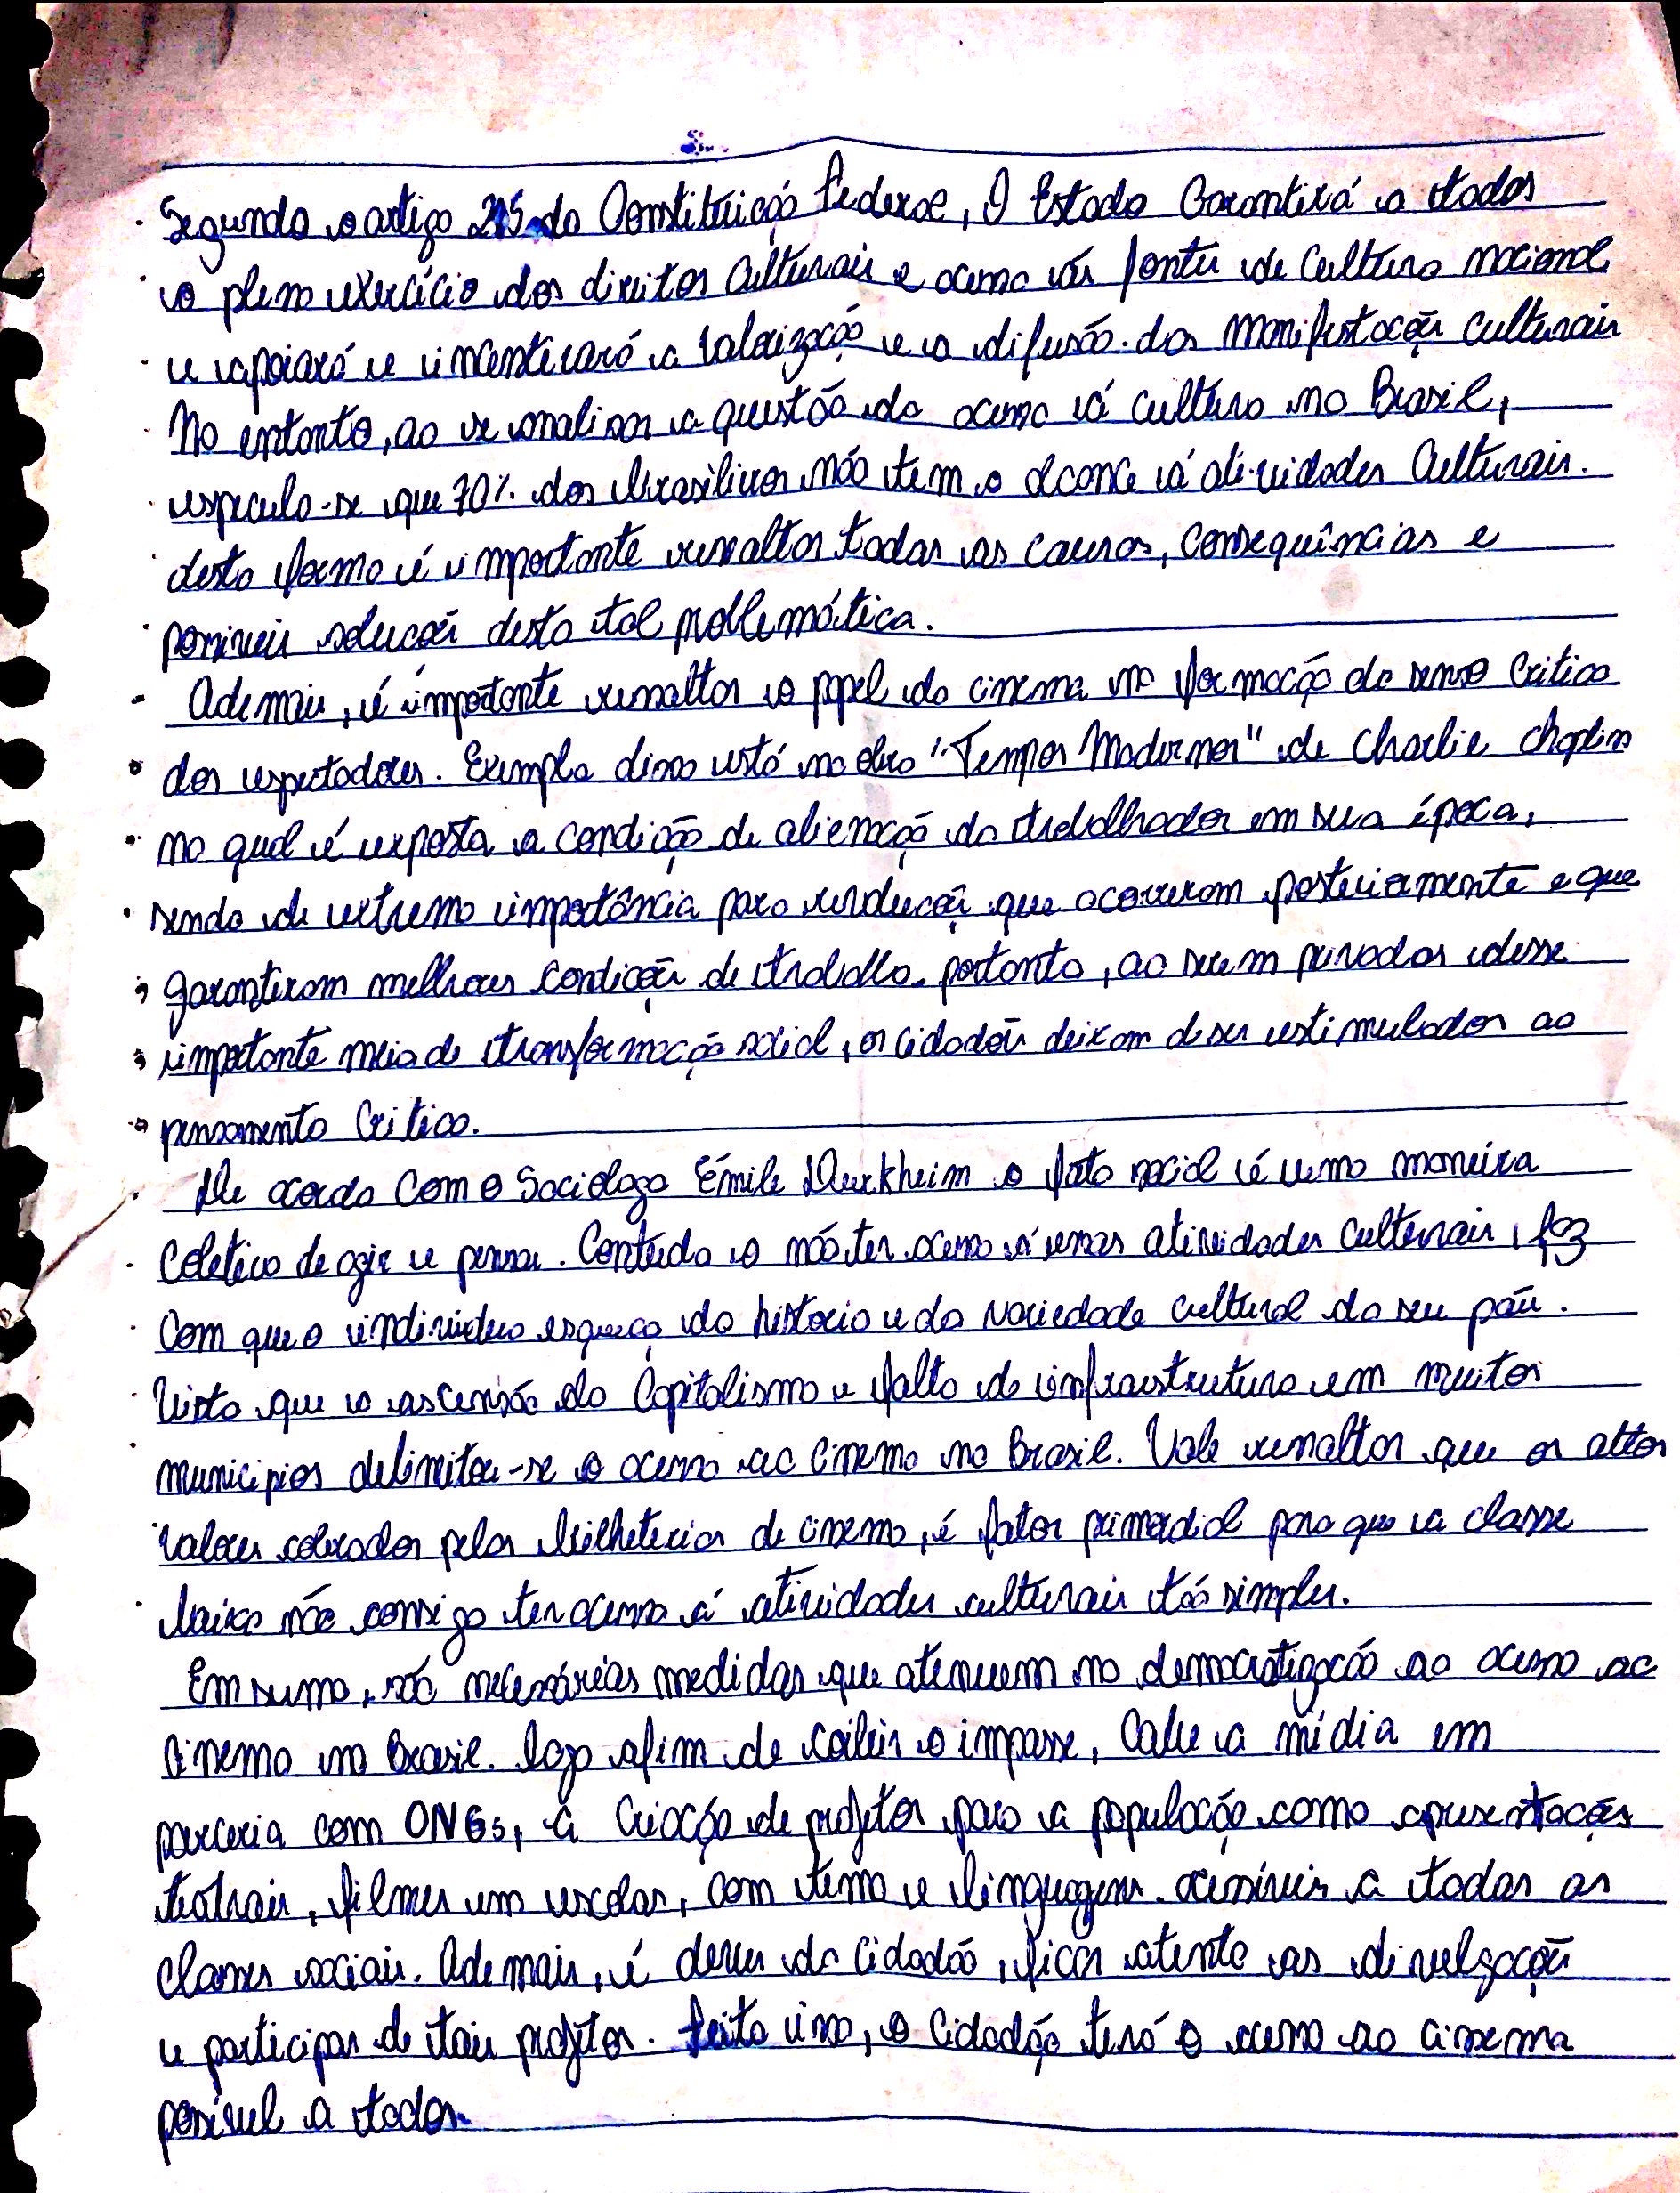 Segundo o artigo 215 da Constituição Federal, O Estado Garantirá a todos
o pleno exercício dos direitos Culturais e acesso às fontes de Cultura nacional
e apoiará e incentivará a Valorização e a difusão das manifestações Culturais
No entanto, ao se analisar a questão do acesso à cultura no Brasil,
especula-se que 70% dos brasileiros não tem o alcance à atividades Culturais.
desta forma é importante ressaltar todas as causas, consequências e
possíveis soluções desta tal problemática.
Ademais, é importante ressaltar o papel do cinema na formação do senso Critico
dos espectadores. Exemplo disso está na obra "Tempos Modernos" de Charlie Chaplin
na qual é exposta a condição de alienação do trabalhador em sua época,
sendo de extrema importância para revoluções que ocorreram posteriormente e que
garantiram melhores condições de trabalho. portanto, ao serem privados desse
importante meio de transformação social, os cidadões deixam de ser estimulados ao
pensamento Critico.
De acordo Com o Sociologo Émile Durkheim o fato social é uma maneira
Coletiva de agir e pensar. Contudo o não ter acesso à essas atividades Culturais, faz
Com que o individuo esqueça da historia e da variedade cultural do seu país.
Visto que a ascensão do Capitalismo e falta de infraestrutura em muitos
municipios delimitou-se o acesso ao Cinema no Brasil. Vale ressaltar que os altos
valores cobrados pelas bilheterias de cinema, é fator primordial para que a classe
baixa não consiga ter acesso á atividades culturais tão simples.
Em suma, são necessárias medidas que atenuem na democratização ao acesso ao
Cinema no Brasil. logo afim de coibir o impasse, Cabe a mídia em
parceria com ONGs, a Criação de projetos para a população como apresentações
teatrais, filmes em escolas, com tema e linguagens acessíveis a todas as
classes sociais. Ademais, é dever do Cidadão, ficar atento as divulgações
e participar de tais projetos. Feito isso, o Cidadão terá o acesso ao cinema
possivel a todos.